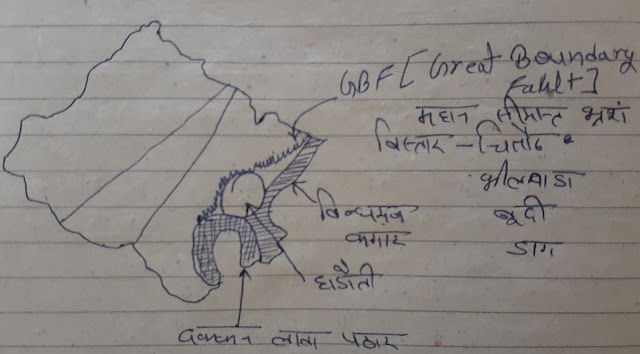 GBF [Great Boundary
Fault]
महान सीमान्त भ्रशं
विस्तार - चितौड
भीलवाडा
बूदी
डाग
विन्धयन
कगार
हाडौती
दक्कन लावा पठार